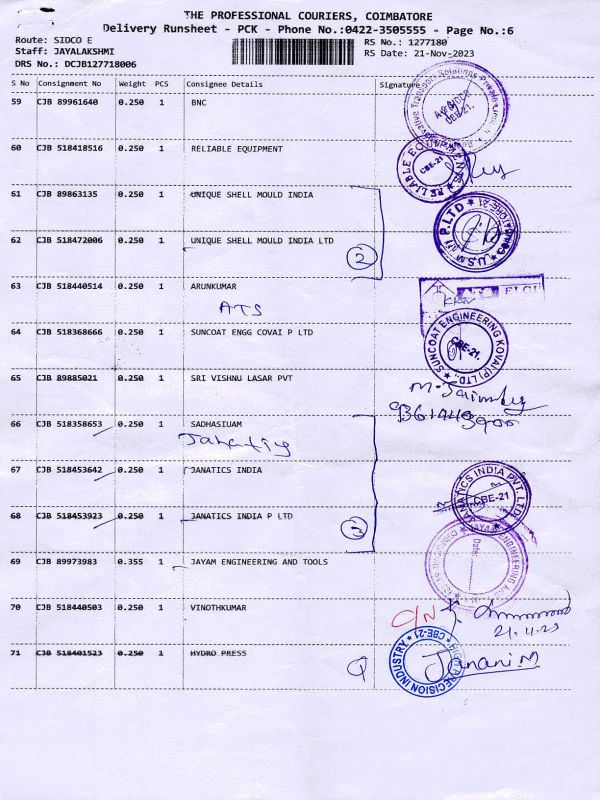 THE PROFESSIONAL COURIERS, COIMBATORE
Delivery Runsheet - PCK - Phone No.:0422-3505555 - Page No.:6
Route: SIDCO E
RS No.: 1277180
Staff: JAYALAKSHMI
RS Date: 21-Nov-2023
DRS No.: DCJB127718006
S No Consignment No Weight PCS Consignee Details Signature
59 CJB 89961640 0.250 1 BNC
60 CJB 518418516 0.250 1 RELIABLE EQUIPMENT
RELIABLE EQUIPMENTS CBE-21
61 CJB 89863135 0.250 1 UNIQUE SHELL MOULD INDIA
62 CJB 518472006 0.250 1 UNIQUE SHELL MOULD INDIA LTD
2
63 CJB 518440514 0.250 1 ARUNKUMAR
ATS
64 CJB 518368666 0.250 1 SUNCOAT ENGG COVAI P LTD
SUNCOAT ENGINEERING KOVAI (P) LTD., CBE-21.
65 CJB 89885021 0.250 1 SRI VISHNU LASAR PVT
66 CJB 518358653 0.250 1 SADHASIUAM
67 CJB 518453642 0.250 1 JANATICS INDIA
JANATICS INDIA PVT. LTD CBE-21
68 CJB 518453923 0.250 1 JANATICS INDIA P LTD
69 CJB 89973983 0.355 1 JAYAM ENGINEERING AND TOOLS
Date:
70 CJB 518440503 0.250 1 VINOTHKUMAR
C/N
21.11.23
71 CJB 518401523 0.250 1 HYDRO PRESS
PRECISION INDUSTRY CBE-21
Janani.M